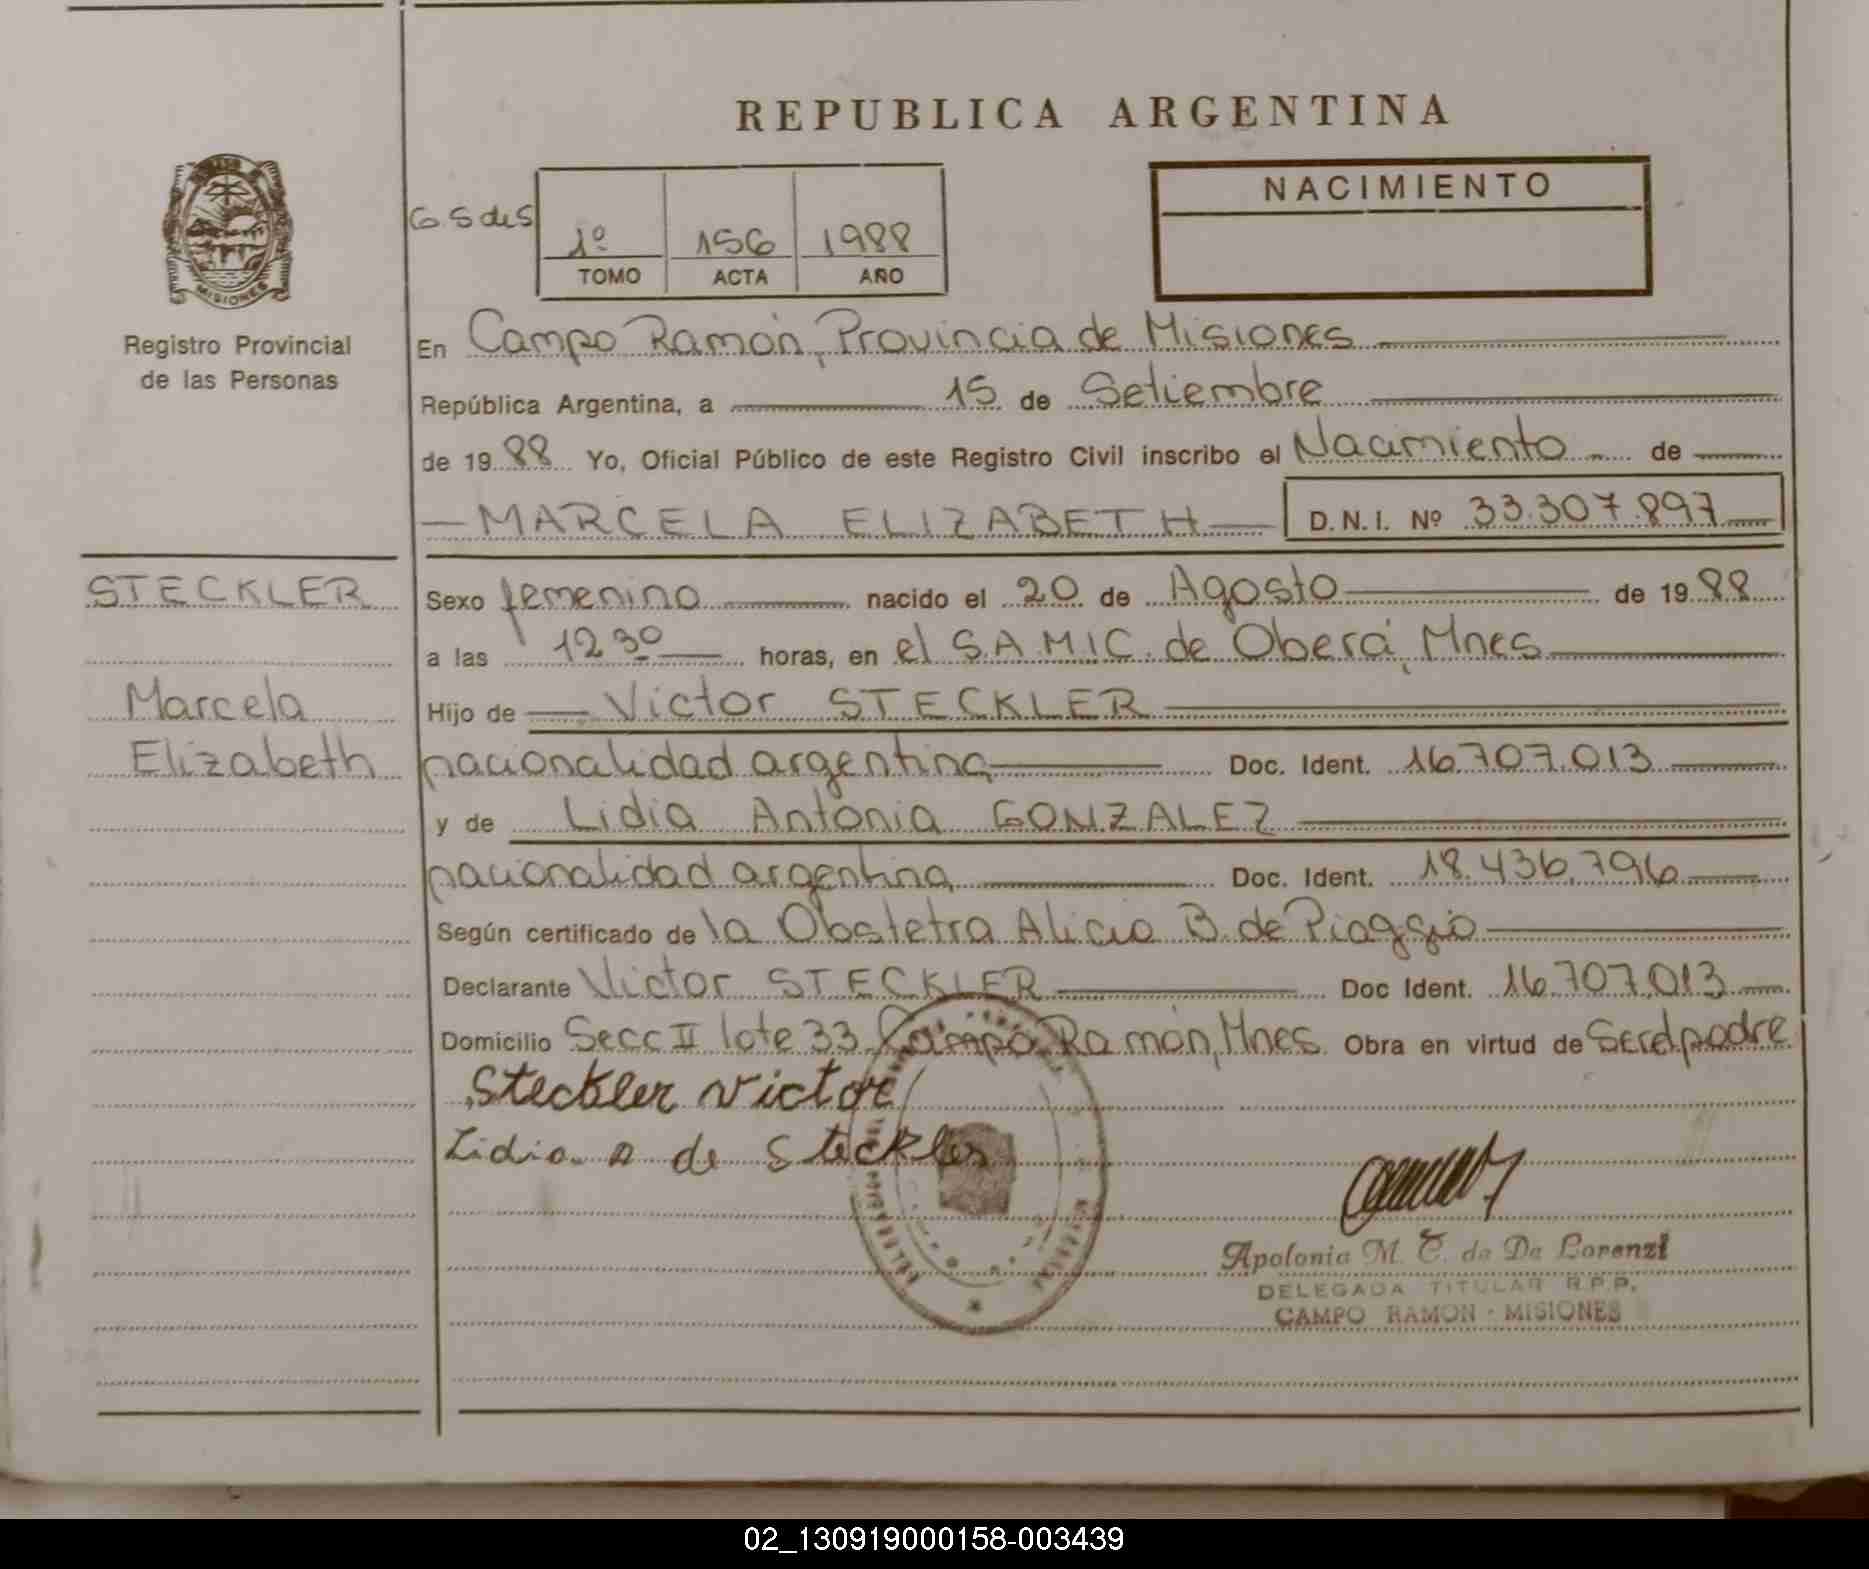 REPUBLICA ARGENTINA
NACIMIENTO
1º 156 1988
TOMO ACTA AÑO
MISIONES
Registro Provincial
de las Personas
En Campo Ramón, Provincia de Misiones
República Argentina, a 15 de Setiembre
de 1988 Yo, Oficial Público de este Registro Civil inscribo el Nacimiento de
MARCELA ELIZABETH D.N.I. Nº 33.307.897
STECKLER
Marcela
Elizabeth
Sexo femenino nacido el 20 de Agosto de 1988
a las 12 30 horas, en el S.A.M.I.C. de Oberá, Mnes
Hijo de Victor STECKLER
nacionalidad argentina Doc. Ident. 16.707.013
y de Lidia Antonia GONZALEZ
nacionalidad argentina Doc. Ident. 18.436.796
Según certificado de la Obstetra Alicia B. de Piaggio
Declarante Victor STECKLER Doc Ident. 16.707.013
Domicilio Secc II lote 33 Campo Ramón, Mnes Obra en virtud de Ser el padre
Steckler victor
Lidia a de Steckler
Apolonia M. C. de De Lorenzi
DELEGADA TITULAR R.P.P.
CAMPO RAMON - MISIONES
02_130919000158-003439